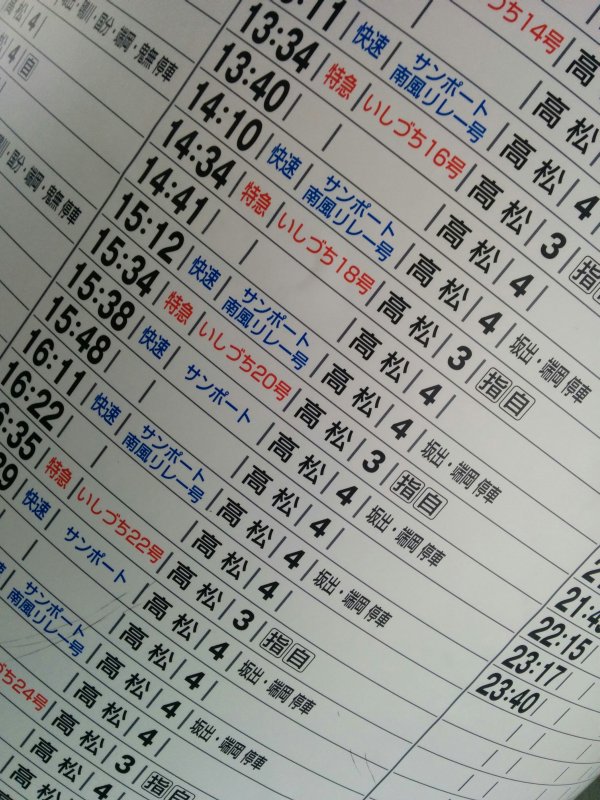 いしづち14号 高
:11 快速 サンポート 南風リレー号 高松 4
13:34 特急 いしづち16号 高松 3 指
13:40 高松 4
14:10 快速 サンポート 南風リレー号 高松 4 坂出・端岡 停車
14:34 特急 いしづち18号 高松 3 指 自
14:41 高松 4
15:12 快速 サンポート 南風リレー号 高松 4 坂出・端岡 停車
15:34 特急 いしづち20号 高松 3 指 自
15:38 快速 サンポート 高松 4
15:48 高松 4
16:11 快速 サンポート 南風リレー号 高松 4 坂出・端岡 停車
16:22 高松 4
6:35 特急 いしづち22号 高松 3 指 自
39 快速 サンポート 高松 4
高松 4
サンポート 南風リレー号 高松 4 坂出・端岡 停車
づち24号 高松 3 指 自
高松 4
22:15
23:17
23:40